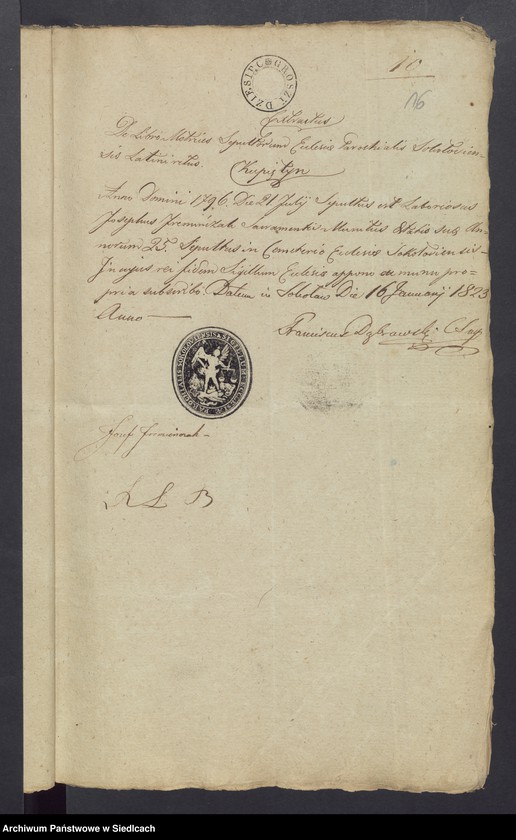 10
16
DZIESIĘC GROSZY
Extractus
De Libro Metrices Sepultorum Ecclesiæ Parochialis Sokołovien-
sis Latini ritus.
Kupiętyn
Anno Domini 1796. Die 21 Julij Sepultus est Laboriosus
Josephus Jremińczak Sacramentis Munitus Ætatis suæ An-
norum 25. Sepultus in Cemeterio Ecclesiæ Sokołovien sis-
In cujus rei fidem Sigillum Ecclesiæ appono ac manu pro-
pria subscribo. Datum in Sokołow Die 16 Januarij 1823
Anno
Franciscus Dąbrowski
Josef